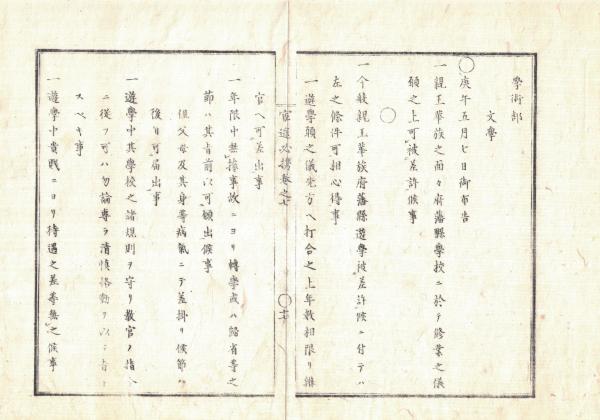 學術部
文學
〇庚午五月七日御布告
一親王華族之面々府藩縣學校ニ於テ修業之儀
願之上可被差許候事
〇
一今般親王華族府藩縣遊學被差許候ニ付テハ
左之條件可相心得事
一遊學願之儀先方ヘ打合之上年数相限リ辨
官選必携卷之七
〇
官ヘ可差出事
一年限中無據事故ニヨリ轉學或ハ歸省等之
節ハ其旨前以可願出候事
但父母及其身等病氣ニテ差掛リ候節ハ
後日可届出事
一遊學中其學校之諸規則ヲ守リ教官ノ指
ニ從フ可ハ勿論專ラ清慎恪勤ヲ以テ旨ト
スベキ事
一遊學中貴賤ニヨリ待遇之差等無之候事